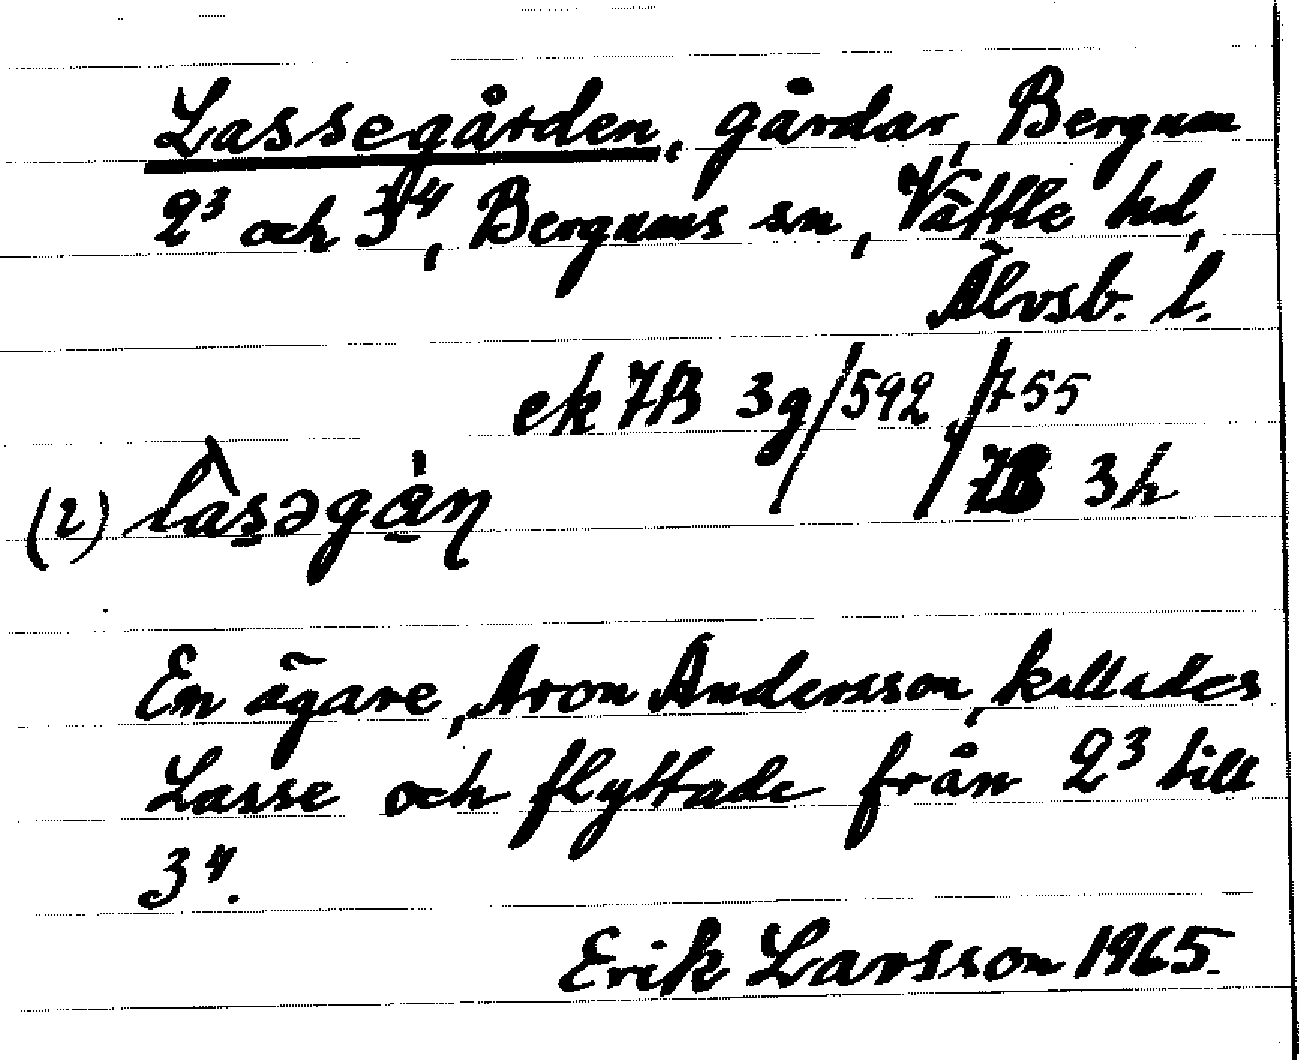 Lassegården, gårdar, Bergum
2³ och 3⁴, Bergums sn, Vättle hd,
Älvsb. l.
ek 7B 3g/592,/755
/7B 3h
(2) làsəgàn
En ägare, Aron Andersson, kallades
Lasse och flyttade från 2³ till
3⁴.
Erik Larsson 1965.